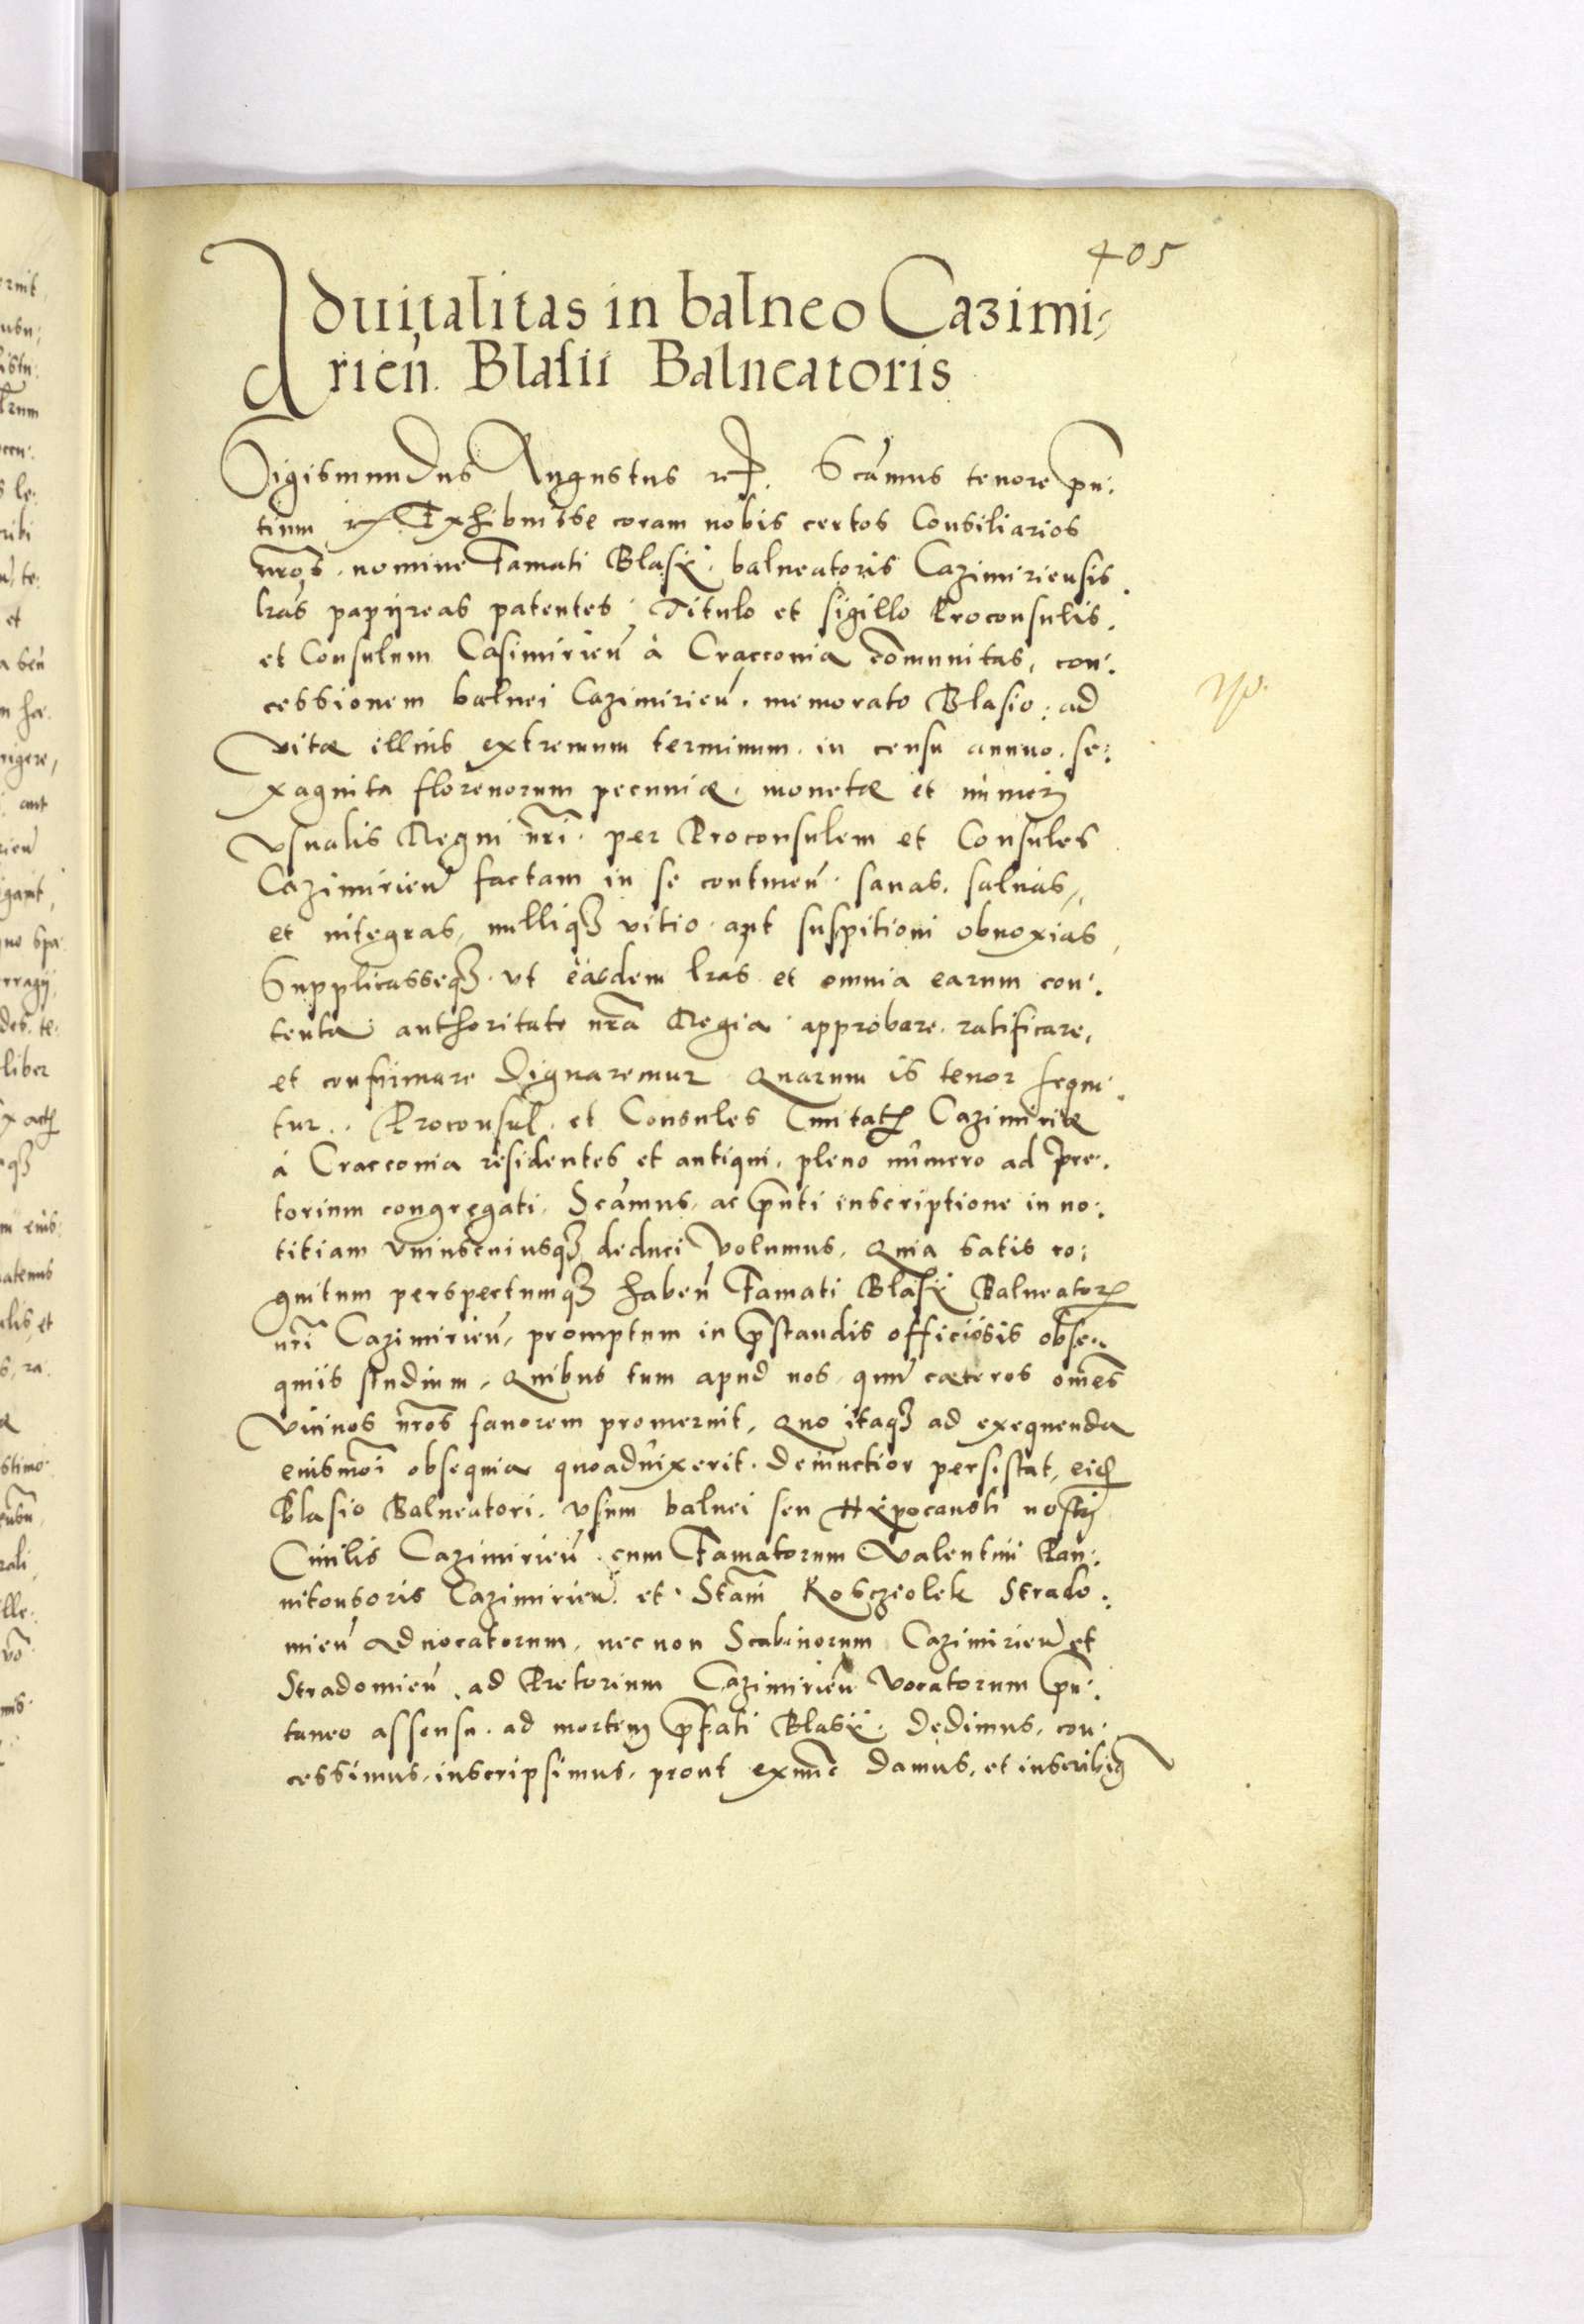 405
Advitalitas in balneo Cazimi-
rien̄. Blasii Balneatoris
Sigismundus Augustus rc̄. Scamus tenore pn̄:
tium rc̄ Exhibuisse coram nobis certos Consiliarios
nr̄os. nomine Famati Blasij. balneatoris Cazimiriensis.
lr̄as papijreas patentes, Titulo et sigillo Proconsulis.
et Consulum Casimirien̄ à Cracconia com̄unitas, con:
cessionem balnei Cazimirien̄. memorato Blasio: ad
vitæ illius extremum terminum. in censu annuo. se:
xaginta florenorum pecuniæ. monetæ et numeri
vsualis Regni nr̄i. per Proconsulem et Consules
Cazimirien̄ factam in se continen̄. sanas. saluas,
et integras, nulliq3 vitio. aut suspitioni obnoxias,
Supplicasseq3. vt easdem lr̄as et omnia earum con:
tenta authoritate nr̄a Regia. approbare. ratificare,
et confirmare dignaremur. Quarum is tenor sequi:
tur.. Proconsul. et Consules Ciuitatis Cazimiriæ
à Cracconia residentes et antiqui, pleno numero ad Pre:
torium congregati. Scamus, ac pn̄ti inscriptione in no:
titiam vniuscuiusq3 deduci volumus, Quia satis co:
gnitum perspectumq3 haben̄ Famati Blasij Balneatoris
nr̄i Cazimirien̄, promptum in p̄standis officiosis obse:
quiis studium, Quibus tum apud nos, qum̄ cæteros om̄es
viuinos nr̄os fauorem promeruit, Quo itaq3 ad exequenda
eiusmōi obsequia quoaduixerit. deuinctior persistat, eidem
Blasio Balneatori. vsum balnei seu Hypocausti nostri
Ciuilis Cazimirien̄. cum Famatorum Valentini Pan:
nitonsoris Cazimirien̄. et. Stan̄i Koscziolek Strado:
mien̄ Aduocatorum, nec non Scabinorum Cazimirien̄ et
Stradomien̄, ad Pretorium Cazimirien̄ vocatorum spn̄:
taneo assensu. ad mortem p̄fati Blasij. dedimus, con:
cessimus, inscripsimus, prout exnunc damus, et inscribim9